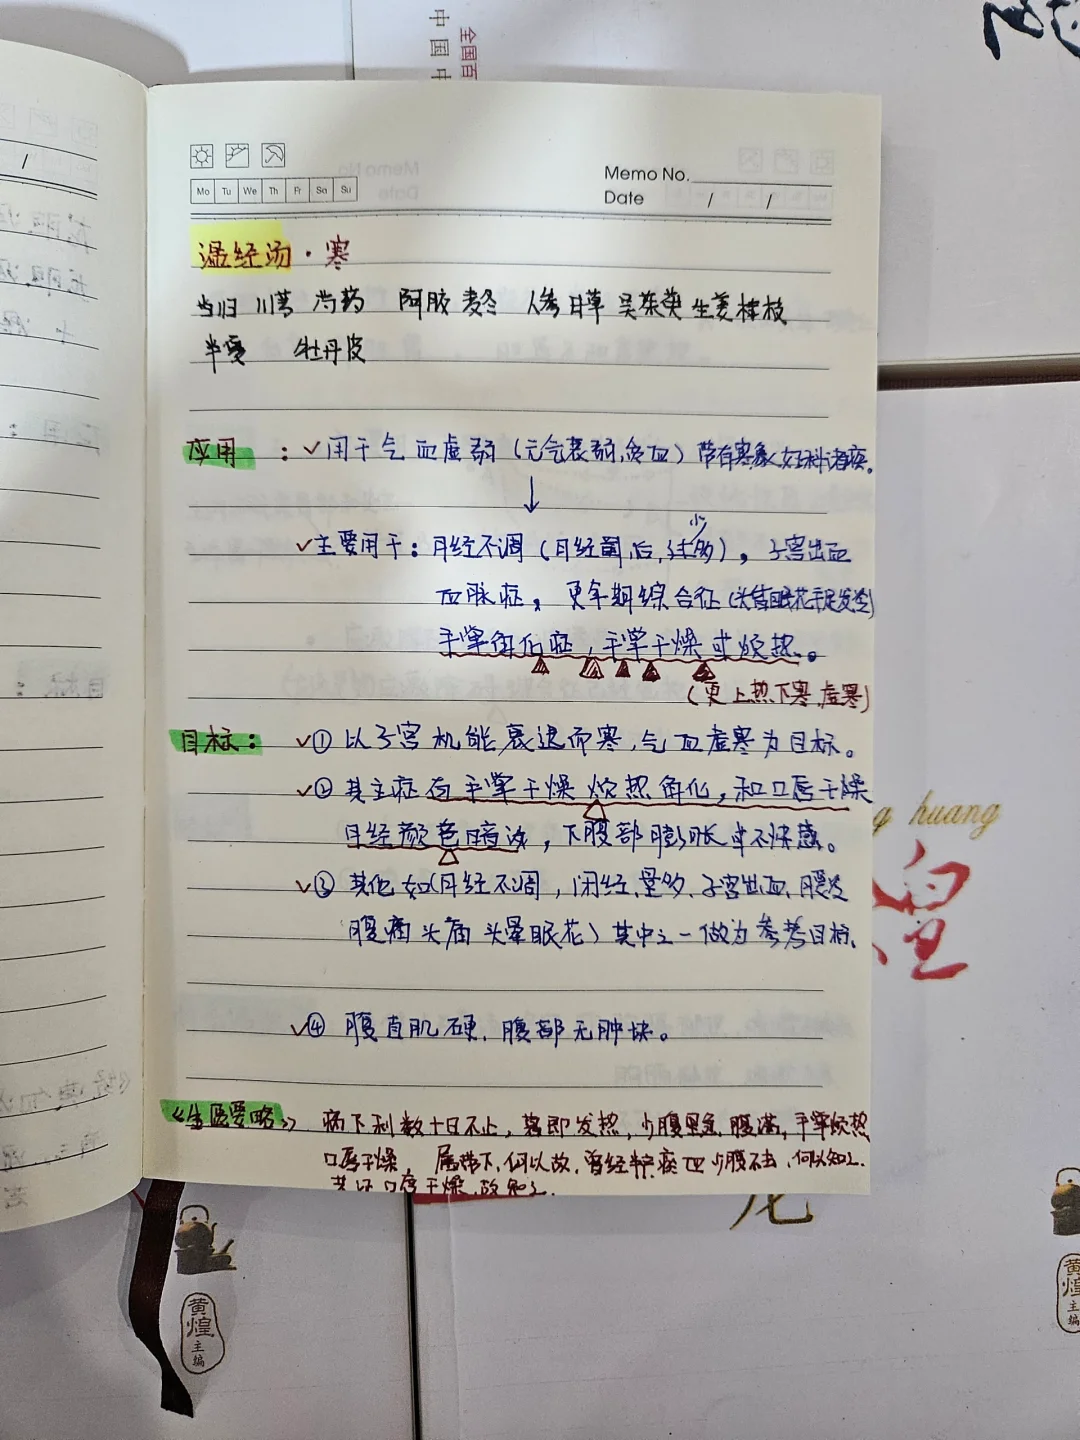 中国中
全国百
Memo No.
Mo Tu We Th Fr Sa Su
Date / /
温经汤·寒
当归 川芎 芍药 阿胶 麦冬 人参 甘草 吴茱萸 生姜 桂枝
半夏 牡丹皮
应用：✓用于气血虚弱（元气衰弱，贫血）带有寒象，妇科诸疾。
↓
少
✓主要用于：月经不调（月经前，后，过多），子宫出血
血脉症，更年期综合征（头痛眼花手足发冷）
手掌角化症，手掌干燥或烦热。
（更上热下寒，虚寒）
目标：✓① 以子宫机能衰退而寒，气血虚寒为目标。
✓② 其主症有手掌干燥 烦热角化，和口唇干燥
月经颜色暗淡，下腹部膨胀 不快感。
✓③ 其他如（月经不调，闭经，量多，子宫出血，腰
腹痛 头痛 头晕眼花）其中之一做为参考目标，
✓④ 腹直肌硬，腹部无肿块。
《 要略》 病下利数十日不止，暮即发热，少腹里急，腹满，手掌烦热
口唇干燥， 属带下，何以故，曾经半产瘀血少腹不去，何以知之
其证口唇干燥，故知之.
g huang
煌
龙
黄煌主编
黄煌主编